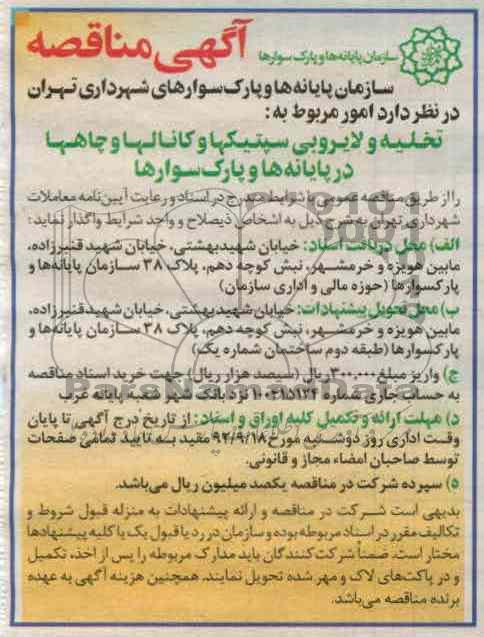 آگهی مناقصه
سازمان پایانه‌ها و پارک سوارها
سازمان پایانه‌ها و پارک‌سوارهای شهرداری تهران
در نظر دارد امور مربوط به:
تخلیه و لایروبی سپتیکها و کانالها و چاهها
در پایانه‌ها و پارک‌سوارها
را از طریق مناقصه عمومی با شرایط مندرج در اسناد و رعایت آیین‌نامه معاملات
شهرداری تهران به شرح ذیل به اشخاص ذیصلاح و واجد شرایط واگذار نماید:
الف) محل دریافت اسناد: خیابان شهید بهشتی، خیابان شهید قنبرزاده،
مابین هویزه و خرمشهر، نبش کوچه دهم، پلاک ۳۸ سازمان پایانه‌ها و
پارکسوارها (حوزه مالی و اداری سازمان)
ب) محل تحویل پیشنهادات: خیابان شهید بهشتی، خیابان شهید قنبرزاده،
مابین هویزه و خرمشهر، نبش کوچه دهم، پلاک ۳۸ سازمان پایانه‌ها و
پارکسوارها (طبقه دوم ساختمان شماره یک)
ج) واریز مبلغ ۳۰۰,۰۰۰ ریال (سیصد هزار ریال) جهت خرید اسناد مناقصه
به حساب جاری شماره ۱۰۰۲۱۵۱۲۴ نزد بانک شهر شعبه پایانه غرب
د) مهلت ارائه و تکمیل کلیه اوراق و اسناد: از تاریخ درج آگهی تا پایان
وقت اداری روز دوشنبه مورخ ۹۲/۹/۱۸ مقید به تایید تمامی صفحات
توسط صاحبان امضاء مجاز و قانونی.
ه) سپرده شرکت در مناقصه یکصد میلیون ریال می‌باشد.
بدیهی است شرکت در مناقصه و ارائه پیشنهادات به منزله قبول شروط و
تکالیف مقرر در اسناد مربوطه بوده و سازمان در رد یا قبول یک یا کلیه پیشنهادها
مختار است. ضمناً شرکت کنندگان باید مدارک مربوطه را پس از اخذ، تکمیل
و در پاکت‌های لاک و مهر شده تحویل نمایند. همچنین هزینه آگهی به عهده
برنده مناقصه می‌باشد.
ParsNamadData